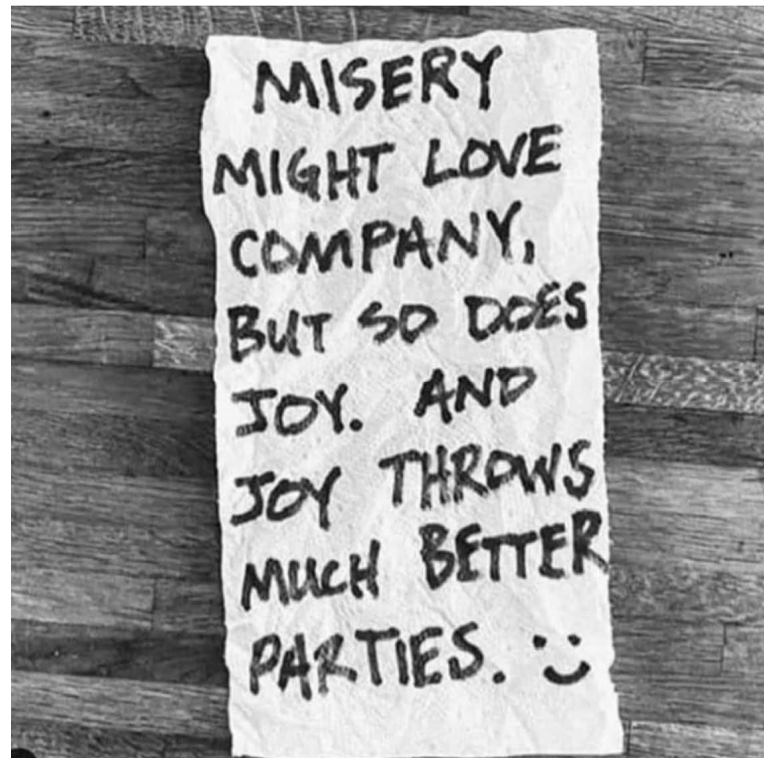 MISERY
MIGHT LOVE
COMPANY,
BUT SO DOES
JOY. AND
JOY THROWS
MUCH BETTER
PARTIES. :)